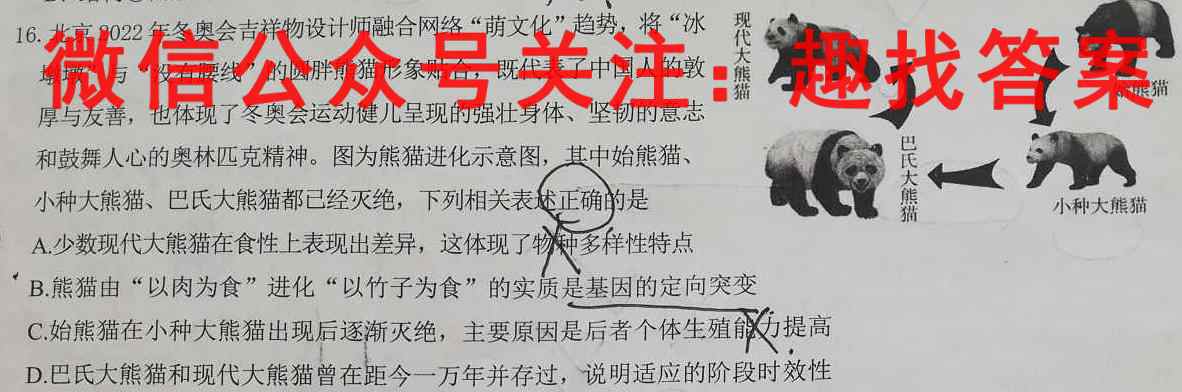 16. 北京2022年冬奥会吉祥物设计师融合网络“萌文化”趋势，将“冰
与“没有腰线”的圆胖熊猫形象贴合，既代表了中国人的敦
厚与友善，也体现了冬奥会运动健儿呈现的强壮身体、坚韧的意志
和鼓舞人心的奥林匹克精神。图为熊猫进化示意图，其中始熊猫、
小种大熊猫、巴氏大熊猫都已经灭绝，下列相关表述正确的是
A.少数现代大熊猫在食性上表现出差异，这体现了物种多样性特点
B.熊猫由“以肉为食”进化“以竹子为食”的实质是基因的定向突变
C.始熊猫在小种大熊猫出现后逐渐灭绝，主要原因是后者个体生殖能力提高
D.巴氏大熊猫和现代大熊猫曾在距今一万年并存过，说明适应的阶段时效性
现代大熊猫
熊猫
巴氏大熊猫
小种大熊猫
微信公众号关注：趣找答案